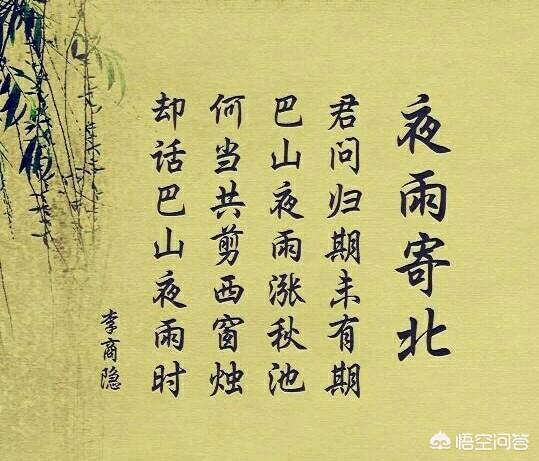 夜雨寄北
君问归期未有期
巴山夜雨涨秋池
何当共剪西窗烛
却话巴山夜雨时
李商隐
悟空问答